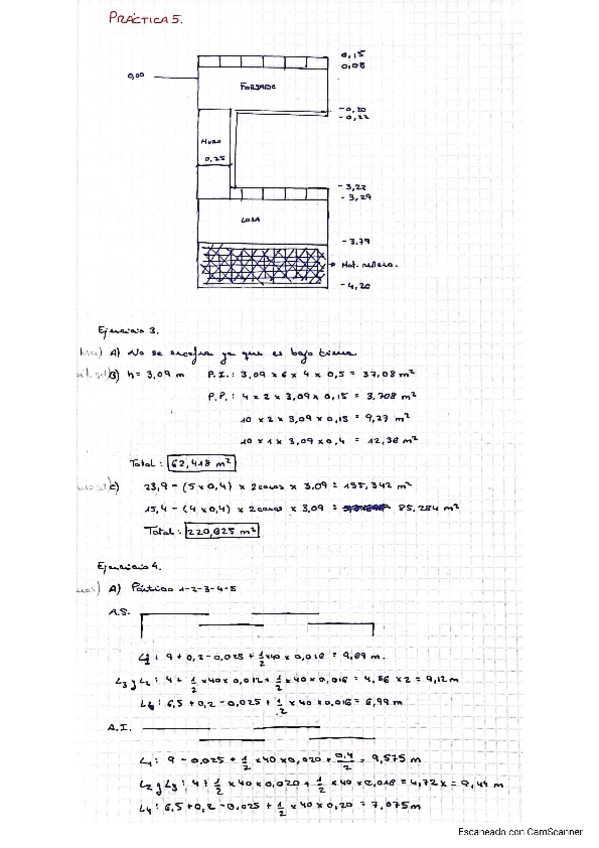 PRÁCTICA 5.
0,15
0,08
0,00
FORJADO
-0,20
-0,22
MURO
0,25
-3,22
-3,29
LOSA
-3,79
Mat. relleno.
-4,20
Ejercicio 3.
A) No se encofra ya que es bajo tierra.
B) h = 3,09 m P.I.: 3,09 x 6 x 4 x 0,5 = 37,08 m²
P.P.: 4 x 2 x 3,09 x 0,15 = 3,708 m²
10 x 2 x 3,09 x 0,15 = 9,27 m²
10 x 1 x 3,09 x 0,4 = 12,36 m²
Total: 62,418 m²
C) 23,9 - (5 x 0,4) x 2caras x 3.09 = 135,342 m²
15,4 - (4 x 0,4) x 2caras x 3,09 = 85,284 m²
Total: 220,625 m²
Ejercicio 4.
A) Pórtico 1-2-3-4-5
A.S.
L1: 9 + 0,2 - 0,025 + 1/2 x 40 x 0,016 = 9,89 m.
L3 y L2: 4 + 1/2 x 40 x 0,012 + 1/2 x 40 x 0,016 = 4,56 x 2 = 9,12 m
L4: 6,5 + 0,2 - 0,025 + 1/2 x 40 x 0,016 = 6,99 m
A.I.
L1: 9 - 0,025 + 1/2 x 40 x 0,020 + 0,4/2 = 9,575 m
L2 y L3: 4 + 1/2 x 40 x 0,020 + 1/2 x 40 x 0,016 = 4,72 x = 9,44 m
L4: 6,5 + 0,2 - 0,025 + 1/2 x 40 x 0,20 = 7,075 m
Escaneado con CamScanner